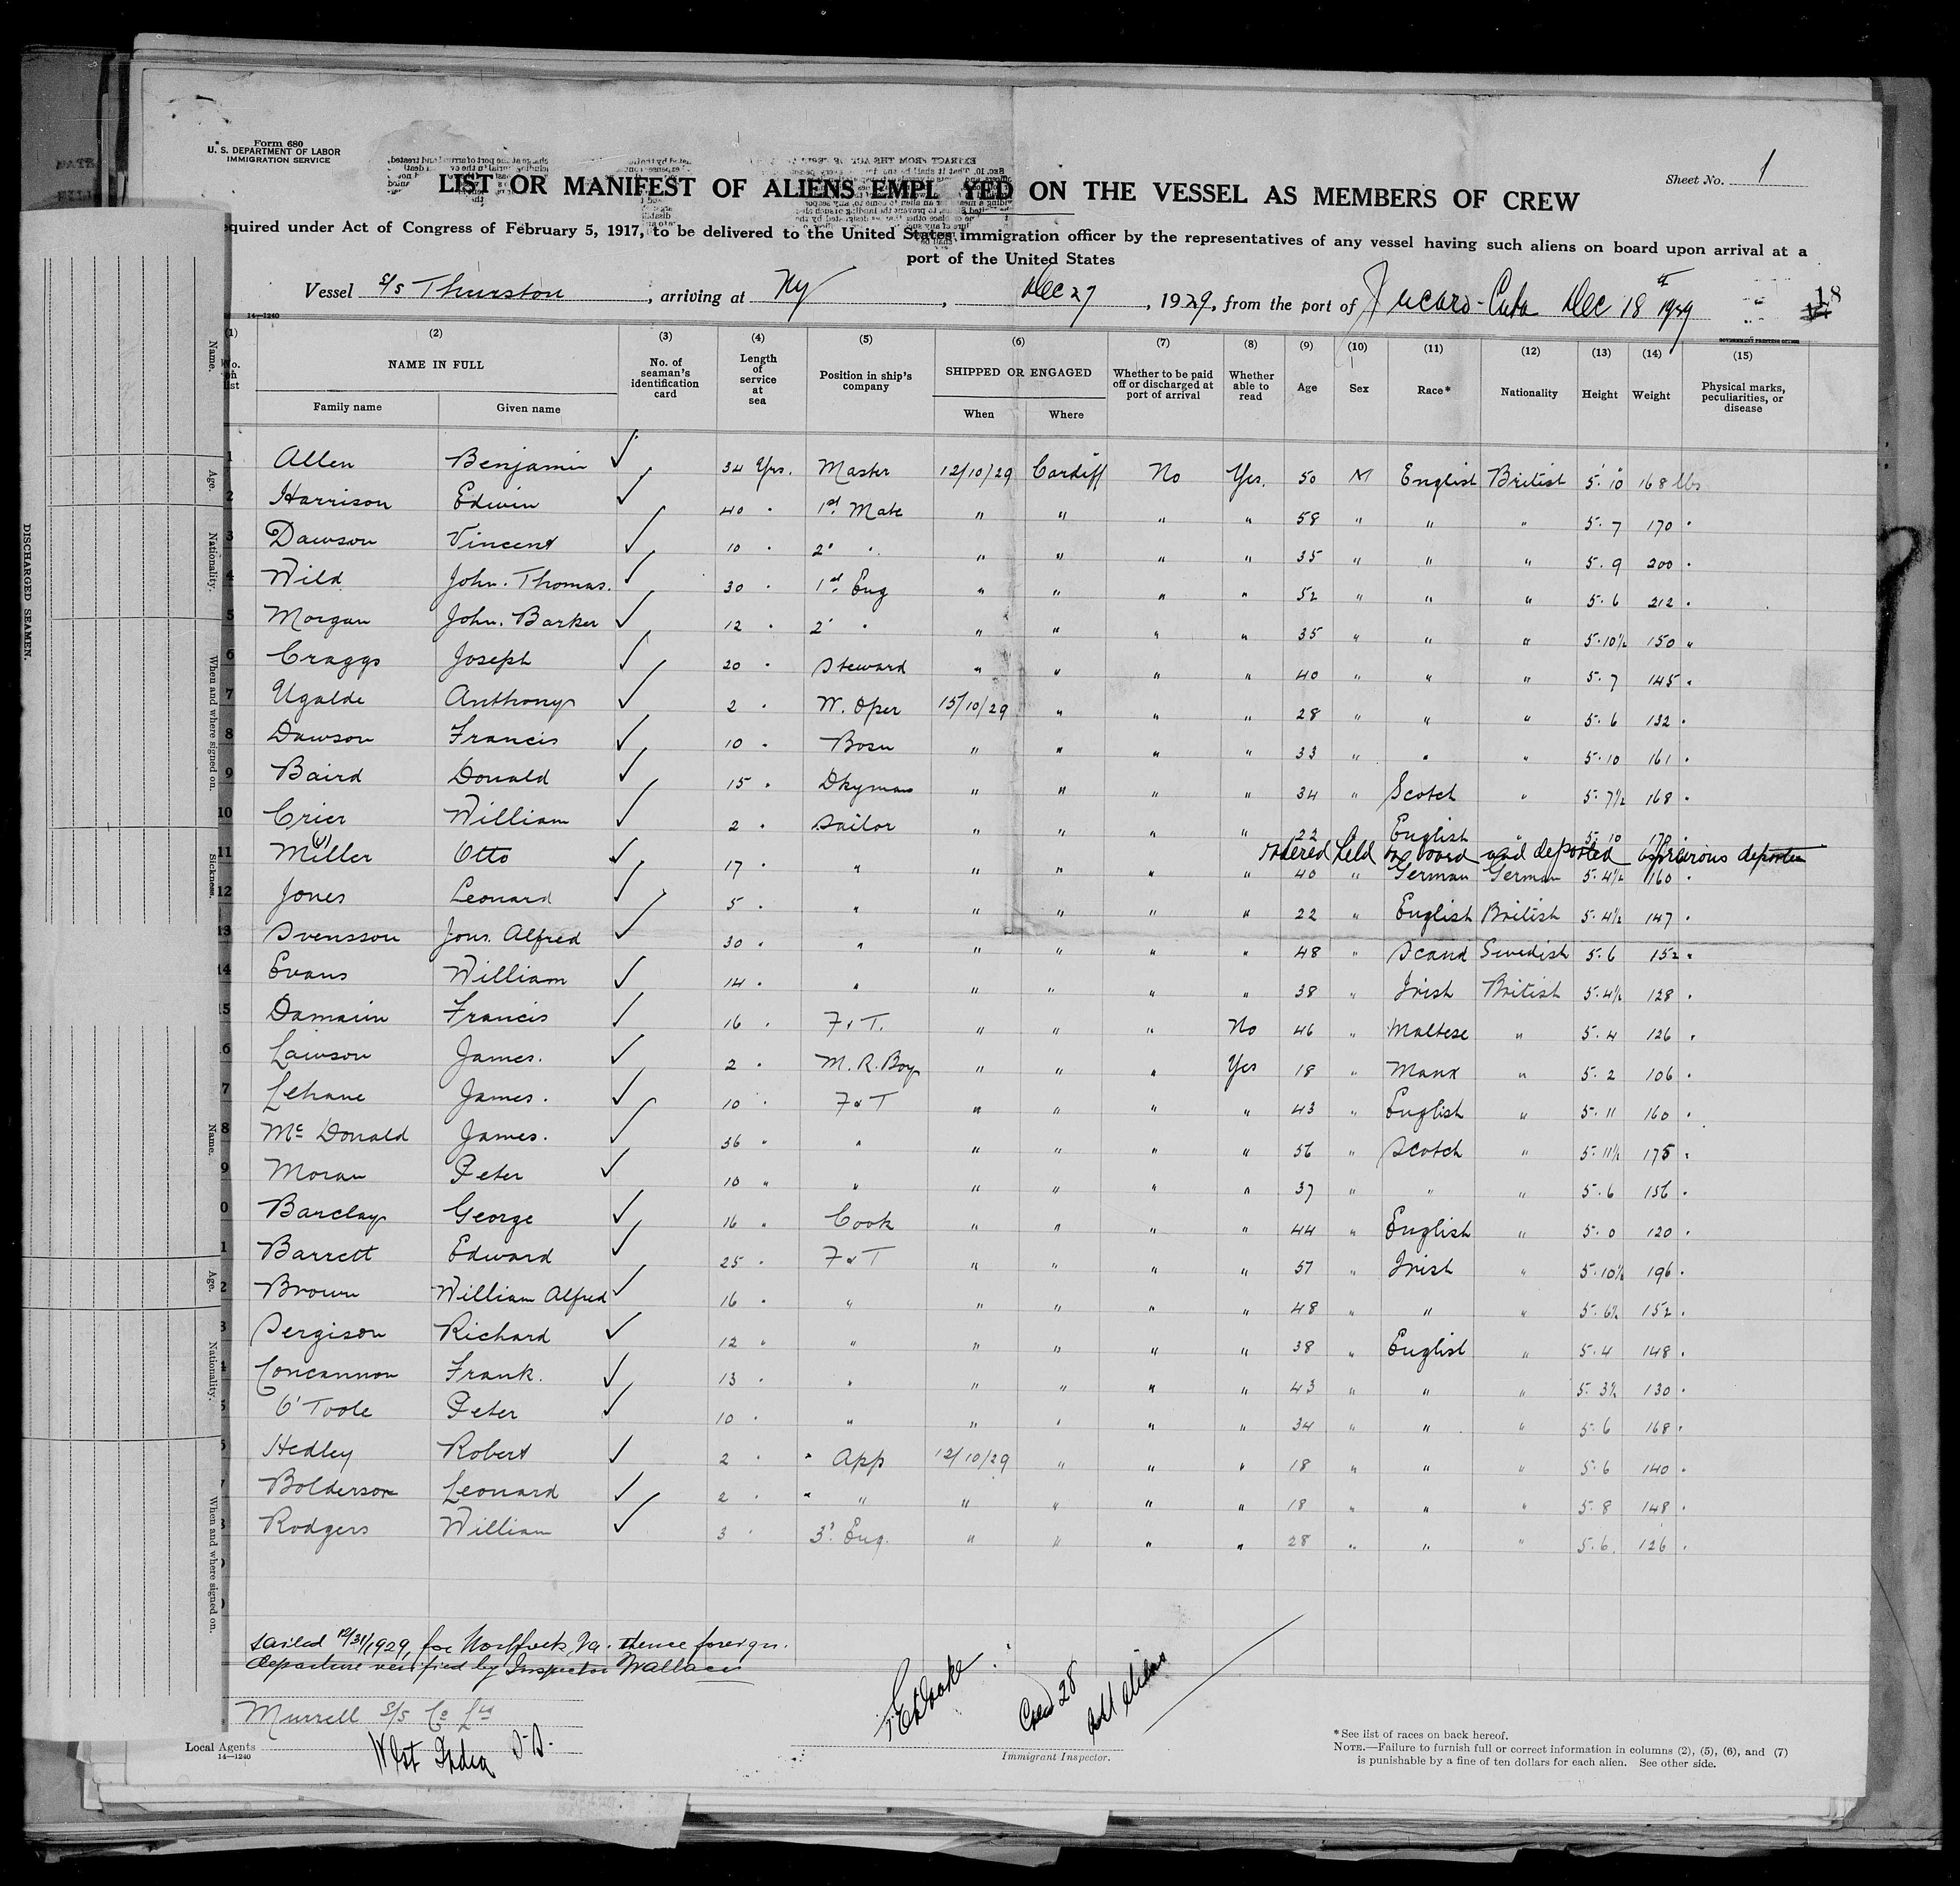 Form 680
U. S. DEPARTMENT OF LABOR
IMMIGRATION SERVICE
Sheet No. 1
LIST OR MANIFEST OF ALIENS EMPL YED ON THE VESSEL AS MEMBERS OF CREW
quired under Act of Congress of February 5, 1917, to be delivered to the United States immigration officer by the representatives of any vessel having such aliens on board upon arrival at a
port of the United States
Vessel S/S Thurston, arriving at Ny, Dec 27, 1929, from the port of Jucaro - Cuba Dec 18th 1929 18
14—1240
GOVERNMENT PRINTING OFFICE
(1) (2) (3) (4) (5) (6) (7) (8) (9) (10) (11) (12) (13) (14) (15)
No. on list NAME IN FULL Family name Given name No. of seaman's identification card Length of service at sea Position in ship's company SHIPPED OR ENGAGED When Where Whether to be paid off or discharged at port of arrival Whether able to read Age Sex Race* Nationality Height Weight Physical marks, peculiarities, or disease
1 Allen Benjamin ✓ 34 Yrs. Master 12/10/29 Cardiff No Yes. 50 M English British 5' 10" 168 lbs
2 Harrison Edwin ✓ 40 " 1st Mate " " " " 58 " " " 5. 7 170 "
3 Dawson Vincent ✓ 10 " 2" " " " " " 35 " " " 5. 9 200 "
4 Wild John. Thomas. ✓ 30 " 1st Eng " " " " 52 " " " 5. 6 212 "
5 Morgan John. Barker ✓ 12 " 2' " " " " " 35 " " " 5. 10½ 150 "
6 Craggs Joseph ✓ 20 " Steward " " " " 40 " " " 5. 7 145 "
7 Ugalde Anthony ✓ 2 " W. Oper 15/10/29 " " " 28 " " " 5. 6 132 "
8 Dawson Francis ✓ 10 " Bosn " " " " 33 " " " 5. 10 161 "
9 Baird Donald ✓ 15 " Dkyman " " " " 34 " Scotch " 5. 7½ 168 "
10 Crier William ✓ 2 " Sailor " " " " 22 English " 5. 10 170 "
ordered held on board and deported as previous deportee
11 Miller (u) Otto ✓ 17 " " " " " " 40 " German German 5. 4½ 160 "
12 Jones Leonard ✓ 5 " " " " " " 22 " English British 5. 4½ 147 "
13 Svensson Jons. Alfred ✓ 30 " " " " " " 48 " Scand Swedish 5. 6 152 "
14 Evans William ✓ 14 " " " " " " 38 " Irish British 5. 4½ 128 "
15 Damann Francis ✓ 16 " F & T. " " " No 46 " Maltese " 5. 4 126 "
16 Lawson James. ✓ 2 " M. R. Boy " " " Yes 18 " Manx " 5. 2 106 "
7 Lehane James. ✓ 10 " F & T " " " " 43 " English " 5. 11 160 "
8 Mc Donald James. ✓ 36 " " " " " " 56 " Scotch " 5. 11½ 175 "
9 Moran Peter ✓ 10 " " " " " " 37 " " " 5. 6 156 "
0 Barclay George ✓ 16 " Cook " " " " 44 " English " 5. 0 120 "
1 Barrett Edward ✓ 25 " F & T " " " " 57 " Irish " 5. 10½ 196 "
2 Brown William Alfred ✓ 16 " " " " " " 48 " " " 5. 6½ 152 "
3 Sergison Richard ✓ 12 " " " " " " 38 " English " 5. 4 148 "
4 Concannon Frank. ✓ 13 " " " " " " 43 " " " 5. 3½ 130 "
5 O'Toole Peter ✓ 10 " " " " " " 34 " " " 5. 6 168 "
6 Hedley Robert ✓ 2 " " App 12/10/29 " " " 18 " " " 5. 6 140 "
7 Bolderson Leonard ✓ 2 " " " " " " " 18 " " " 5. 8 148 "
8 Rodgers William ✓ 3 " 3' Eng. " " " " 28 " " " 5. 6 126 "
Sailed 12/31/1929, for Norfolk Va. thence foreign.
departure verified by Inspector Wallace
Murrell S/S Co Ltd
Local Agents West India S.S.
14—1240
Crew 28
All Aliens
Immigrant Inspector.
*See list of races on back hereof.
NOTE.—Failure to furnish full or correct information in columns (2), (5), (6), and (7)
is punishable by a fine of ten dollars for each alien. See other side.
DISCHARGED SEAMEN.
Name.
Age.
Nationality.
When and where signed on.
Sickness.
Name.
Age.
Nationality.
When and where signed on.